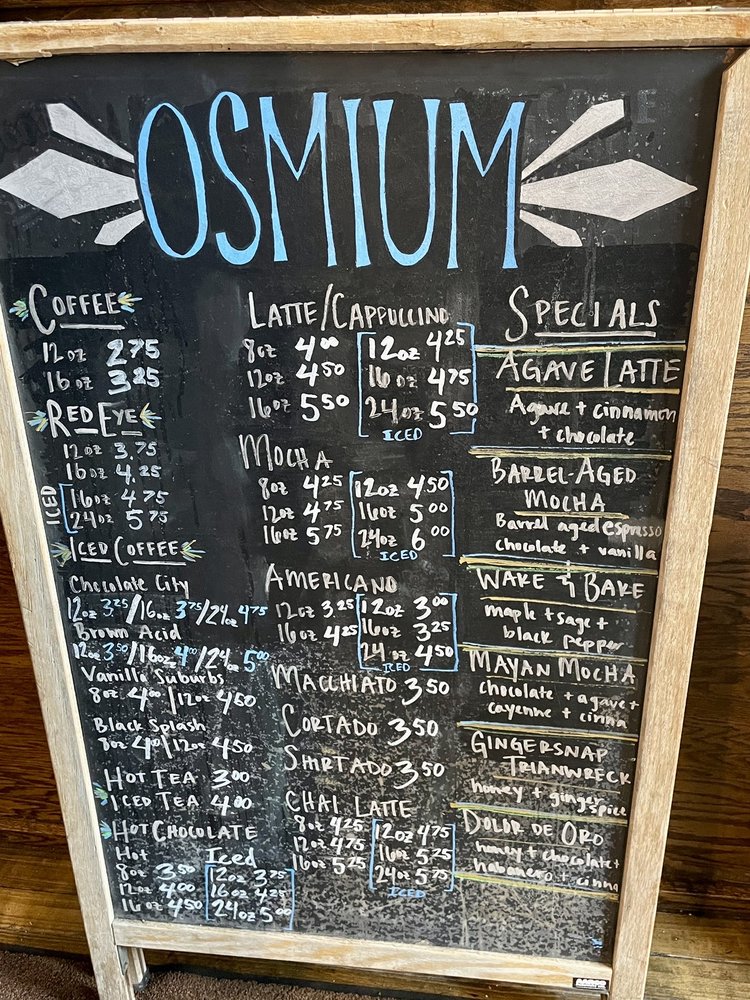 OSMIUM
COFFEE
12oz 2.75
16oz 3.25
RED EYE
12oz 3.75
16oz 4.25
ICED
16oz 4.75
24oz 5.75
ICED COFFEE
Chocolate City
12oz 3.25/16oz 3.75/24oz 4.75
Brown Acid
12oz 3.50/16oz 4.00/24oz 5.00
Vanilla Suburbs
8oz 4.00/12oz 4.50
Black Splash
8oz 4.00/12oz 4.50
HOT TEA 3.00
ICED TEA 4.00
HOT CHOCOLATE
Hot
8oz 3.50
12oz 4.00
16oz 4.50
Iced
12oz 3.75
16oz 4.25
24oz 5.00
LATTE/CAPPUCCINO
8oz 4.00
12oz 4.50
16oz 5.50
12oz 4.25
16oz 4.75
24oz 5.50
ICED
MOCHA
8oz 4.25
12oz 4.75
16oz 5.75
12oz 4.50
16oz 5.00
24oz 6.00
ICED
AMERICANO
12oz 3.25
16oz 4.25
12oz 3.00
16oz 3.25
24oz 4.50
ICED
MACCHIATO 3.50
CORTADO 3.50
SHRTADO 3.50
CHAI LATTE
8oz 4.25
12oz 4.75
16oz 5.25
12oz 4.75
16oz 5.25
24oz 5.75
ICED
SPECIALS
AGAVE LATTE
Agave + cinnamon
+ chocolate
BARREL-AGED
MOCHA
Barrel aged espresso
chocolate + vanilla
WAKE & BAKE
maple + sage +
black pepper
MAYAN MOCHA
chocolate + agave +
cayenne + cinna
GINGERSNAP
TRIANWRECK
honey + ginger
spice
DOLOR DE ORO
honey + chocolate +
habanero + cinna